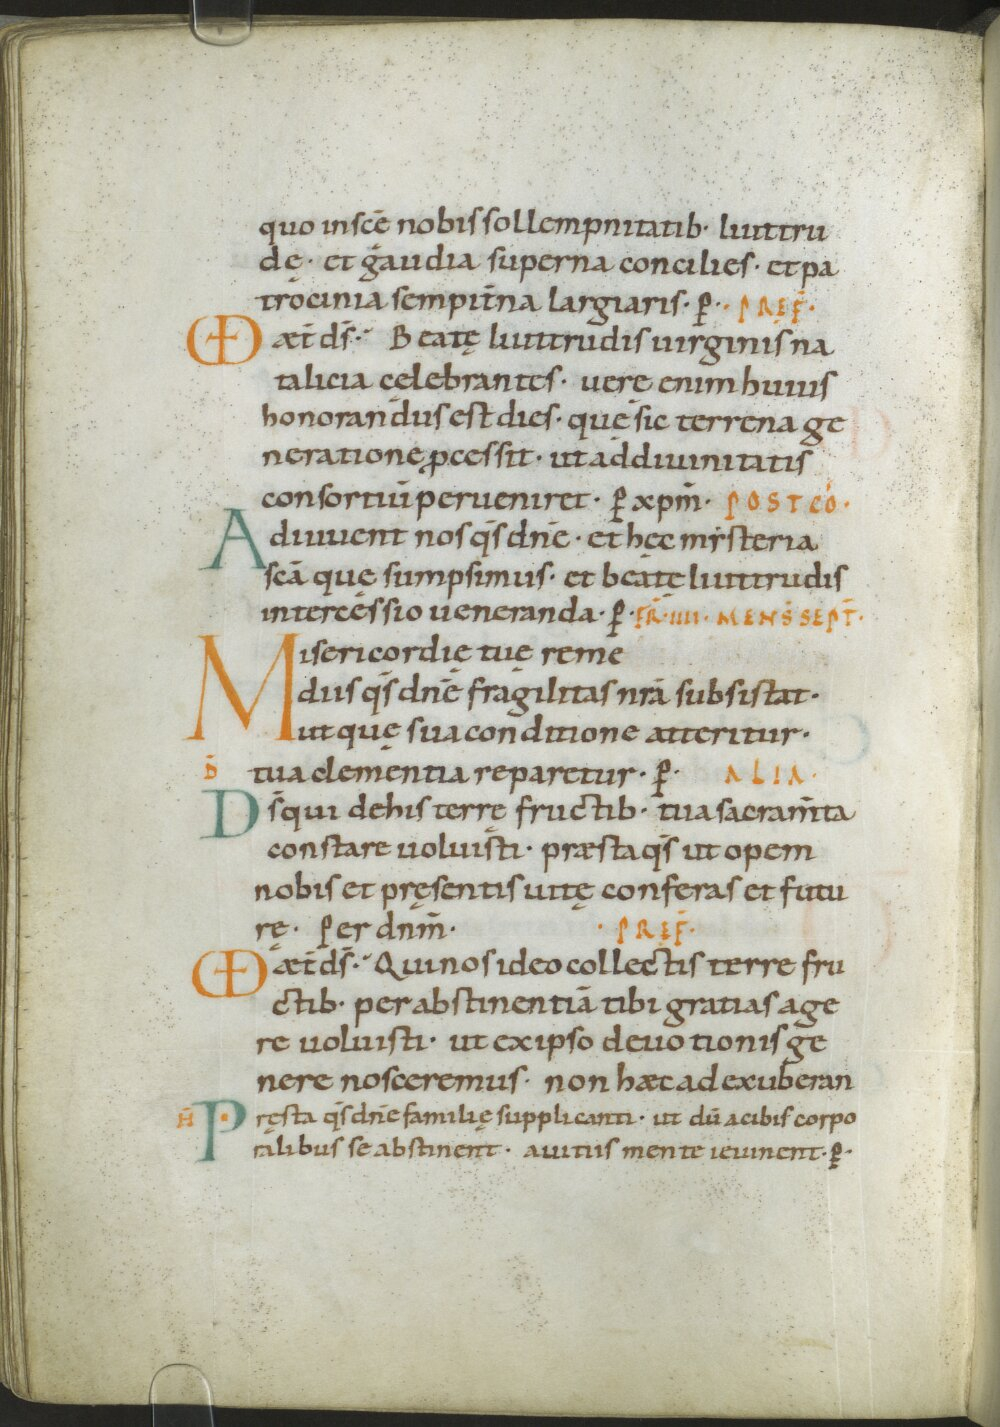 quo in scē nobis sollempnitatib· liuttru
dę· et gaudia superna concilies· et pa
trocinia sempit̄na largiaris· p̱· PREF̄·
VD æt̄ ds̄· Beatę liuttrudis uirginis na
talicia celebrantes· uere enim huius
honorandus est dies· quę sic terrena ge
neratione p̱cessit· ut ad diuinitatis
consortiū perueniret· p̱ xpm̄· POST CŌ·
Adiuuent nos qs̄ dnē· et hec mysteria
scā quę sumpsimus· et beatę liuttrudis
intercessio ueneranda· p̱· FR̄· IIII· MENS̄ SEPT̄·
Misericordię tuę reme
diis qs̄ dnē fragilitas nrā subsistat·
ut quę sua conditione atteritur·
B̄ tua clementia reparetur· p̱· ALIA·
Ds̄ qui de his terrę fructib· tua sacram̄ta
constare uoluisti· præsta qs̄ ut opem
nobis et pręsentis uitę conferas et futu
rę· Per dnm̄· · PREF̄·
VD æt̄ ds̄· Qui nos ideo collectis terre fru
ctib· per abstinentiā tibi gratias age
re uoluisti· ut ex ipso deuotionis ge
nere nosceremus· non hæc ad exuberan
H̄ Pręsta qs̄ dnē familię supplicanti· ut dū a cibis corpo
ralibus se abstinent· a uitiis mente ieiunent· p̱·